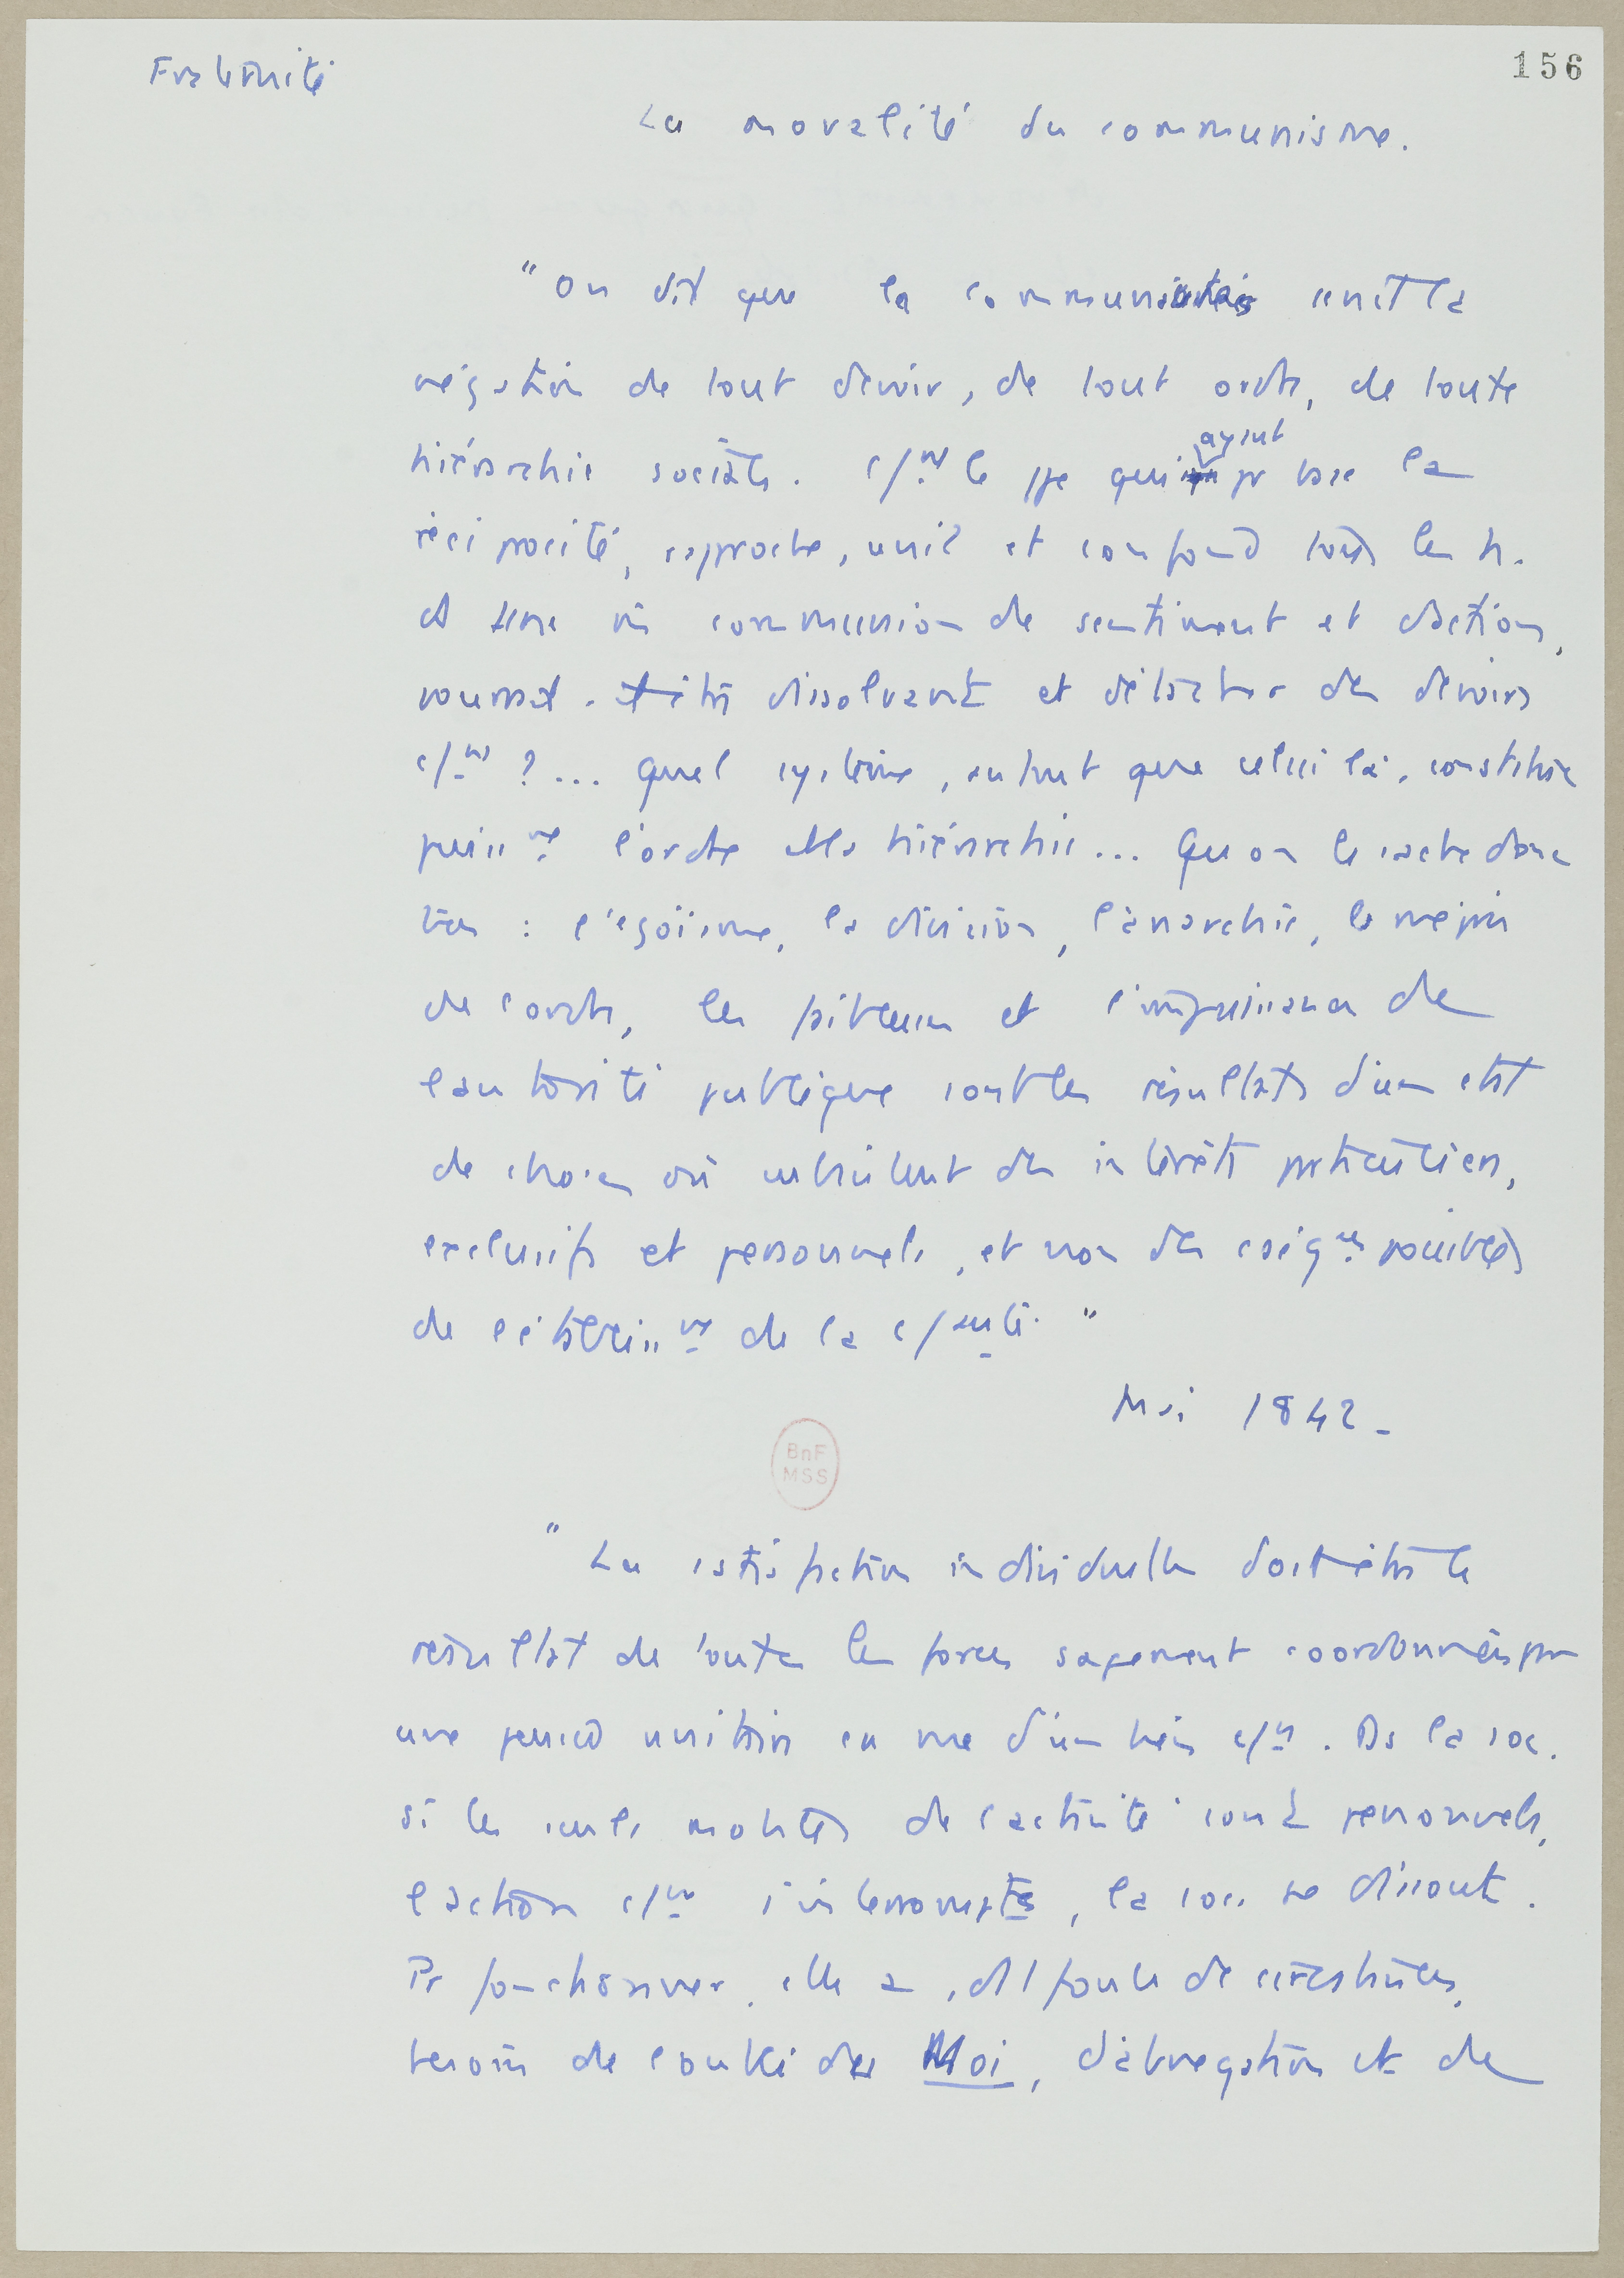 Fraternité
156
La moralité du communisme.
"On dit que la communauté serait la
négation de tout devoir, de tout ordre, de toute
hiérarchie sociale. c/nt le ppe qui ayant pr base la
réciprocité, rapproche, unit et confond tous les h.
ds une m communion de sentiment et d'action,
pourrait-il être dissolvant et délateur des devoirs
c/ns ?... Quel système, autant que celui là, constitue
puiss.nt l'ordre et la hiérarchie... Qu'on le sache donc
bien : l'égoïsme, la division, l'anarchie, le mépris
de l'ordre, les faiblesses et l'impuissance de
l'autorité publique sont les résultats d'un état
de choses où subsistent des intérêts particuliers,
exclusifs et personnels, et non des conséq.ces possibles
de l'établiss.nt de la c/auté."
Mai 1842 -
"La satisfaction individuelle doit être le
résultat de toutes les forces sagement coordonnées par
une pensée unitaire en vue d'un bien c/n. Ds la soc.
si les seuls mobiles de l'activité sont personnels,
l'action c/ne s'interrompt, la soc. se dissout.
Pr fonctionner, elle a, ds 1 foule de circonstances,
besoin de l'oubli du Moi, d'abnégation et de